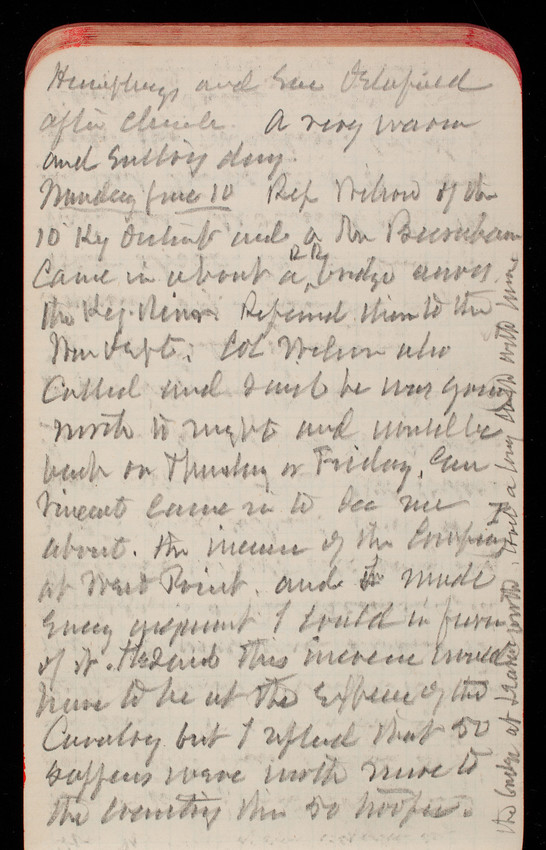 Humphreys and Gen Schofield
after church. A very warm
and sultry day.
Monday June 10 Rep Wilson of the
10 Ky District and a Mr
Came in about a RR bridge across
the Ky. River. Referred them to the
War Dept. Col Wilson also
called and said he was going
north to night and would be
back on Thursday or Friday. Gen
Vincent came in to see me
about the increase of the Company
at West Point. and I made
every argument I could in favor
of it. He said this increase would
have to be at the expense of the
Cavalry but I replied that 50
sappers were worth more to
the country than 50 troopers.
the border at Leavenworth. Had a long talk with him